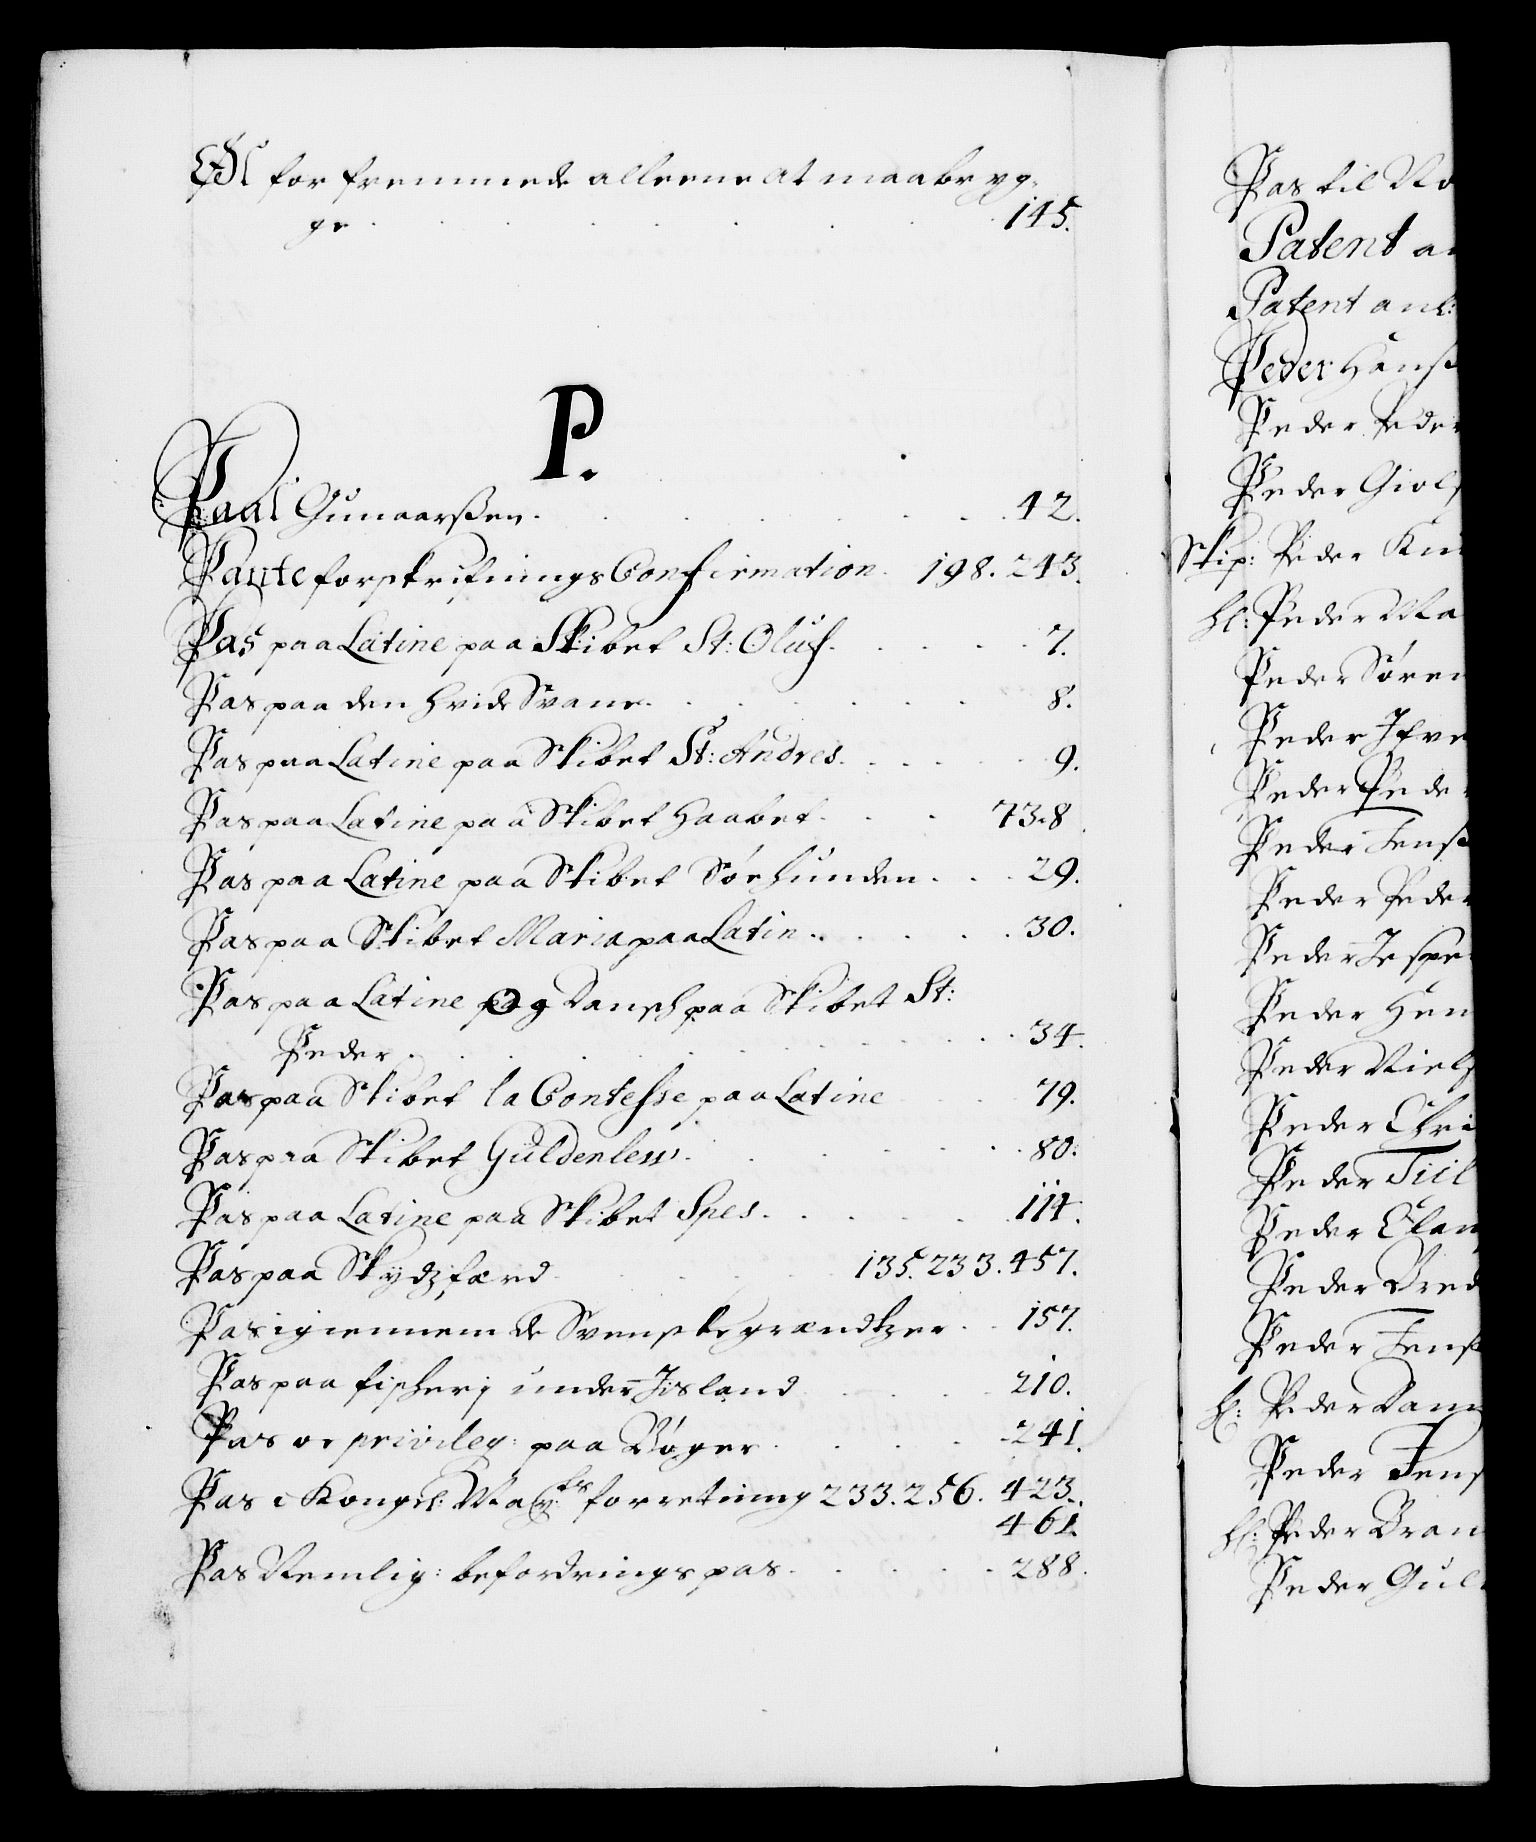 Øl for fremmede alleene at maa bryg-
ge . . . . . . . 145.
P.
Paal Gunaarßen . . . . . . 42.
Pante forskrifnings Confirmation . 198. 243.
Pas paa Latine paa Skibet St: Oluf . . . . 7.
Pas paa den hvide Svane . . . . . 8.
Pas paa Latine paa Skibet St: Andres . . . . 9.
Pas paa Latine paa Skibet Haabet . . . 73.8
Pas paa Latine paa Skibet Søehunden . . . 29.
Pas paa Skibet Maria paa Latin . . . . . 30.
Pas paa Latine og Dansch paa Skibet St:
Peder . . . . . . . . 34.
Pas paa Skibet la Contesse paa Latine . . 79.
Pas paa Skibet Güldenlew . . . . . 80.
Pas paa Latine paa Skibet Spes . . . . . 114.
Pas paa Skydzfærd . . . . 135. 233. 457.
Pas igiennem de Svenske grændtzer . . 157.
Pas paa fischerj under Jisland . . . . 210.
Pas oc privileg: paa Bøger . . . . 241.
Pas i Kongel: May:ts forretning 233. 256. 423.
461.
Pas Nemlig: befordrings pas . . . . . 288.
Pas til No
Patent a
Patent anl:
Peder Hansß
Peder Peder
Peder Giols
Skip: Peder Knu
hl: Peder Ma
Peder Søren
Peder Ifve
Peder Peder
Peder Jensß
Peder Peder
Peder Jespe
Peder Hen
Peder Niels
Peder Chri
Peder Tiil
Peder Clau
Peder Bred
Peder Jensß
hl: Peder Dan
Peder Jens
hl: Peder Bran
Peder Gul